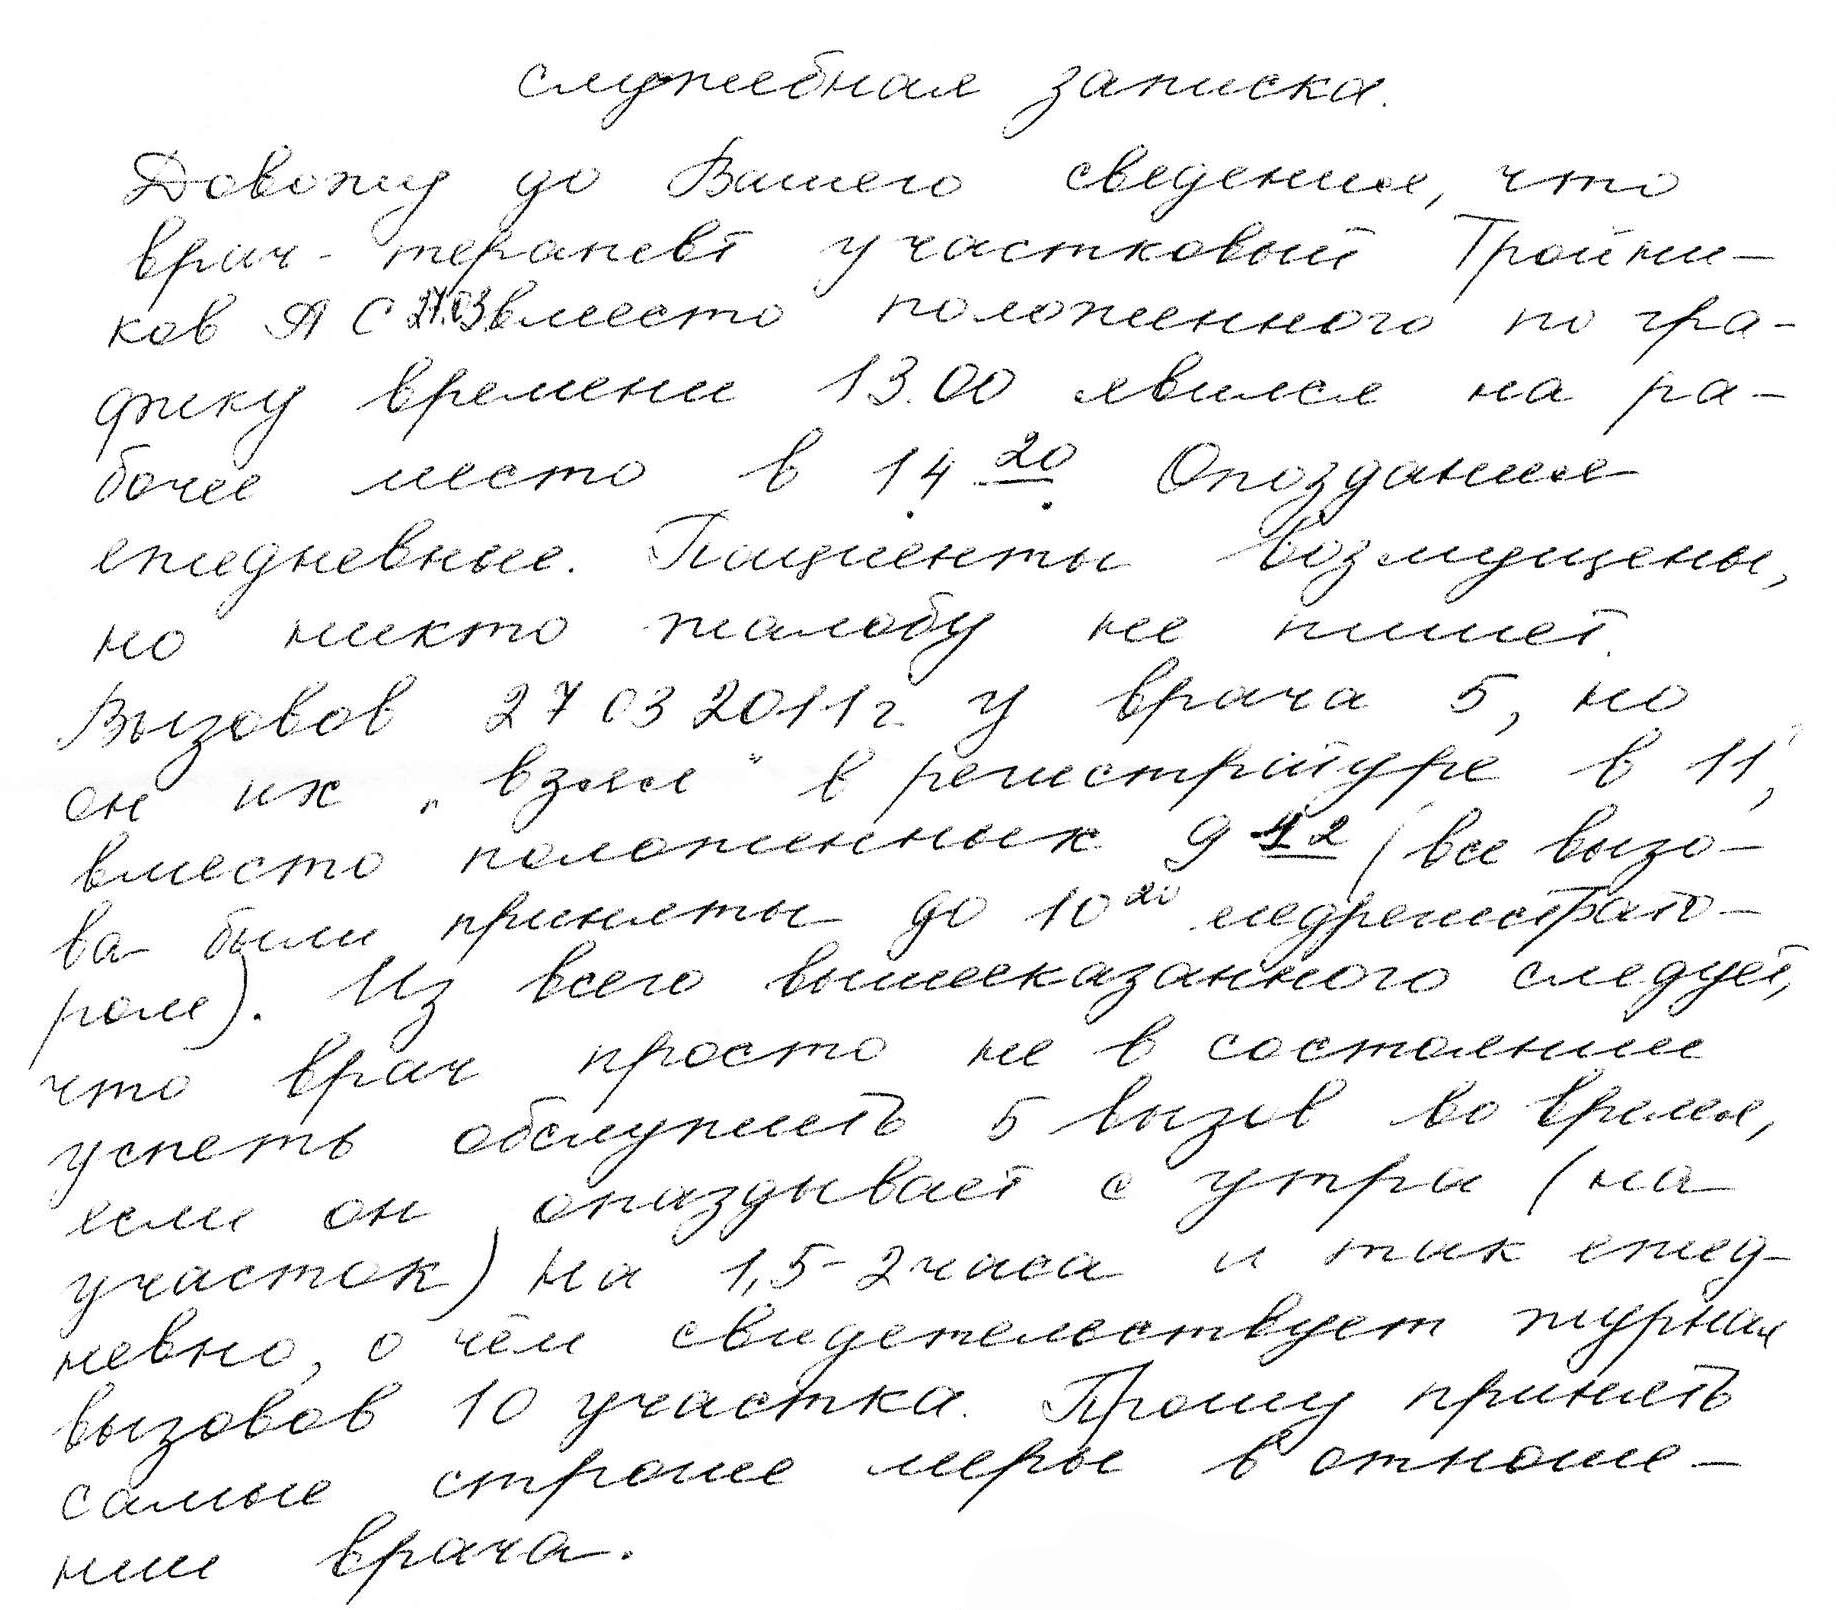 служебная записка.
Довожу до Вашего сведения, что
врач-терапевт участковый Тройни-
ков А С 27.03 вместо положенного по гра-
фику времени 13.00 явился на ра-
бочее место в 14 20 Опоздания
ежедневные. Пациенты возмущены,
но никто жалобу не пишет.
Вызовов 27 03 2011г. у врача 5, но
он их „взял" в регистратуре в 11,
вместо положенных 9 (все вызо-
ва были приняты до 10 20 медрегистрато-
ром). Из всего вышесказанного следует,
что врач просто не в состоянии
успеть обслужить 5 вызов во время,
если он опаздывает с утра (на
участок) на 1,5-2 часа и так ежед-
невно, о чём свидетельствует журнал
вызовов 10 участка. Прошу принять
самые строгие меры в отноше-
нии врача.